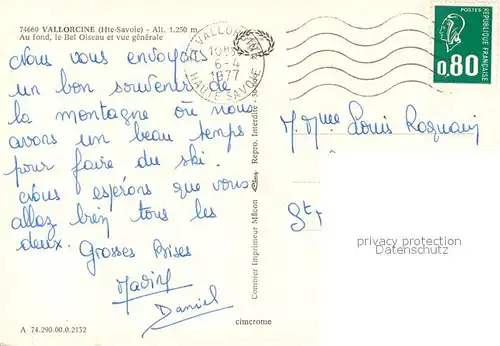 74660 VALLORCINE (Hte-Savoie) - Alt. 1.250 m
Au fond, le Bel Oiseau et vue générale
VALLORCINE
6-4
1977
HAUTE-SAVOIE
POSTES
REPUBLIQUE FRANÇAISE
0,80
Nous vous envoyons
un bon souvenir de
la montagne où nous
avons un beau temps
pour faire du ski.
Nous espérons que vous
allez bien tous les
deux.
Grosses Bises
Daniel
M. Mme Louis
St
privacy protection
Datenschutz
Combier Imprimeur Mâcon
Repro. Interdite
cimcrome
A 74.290.00.0.2152